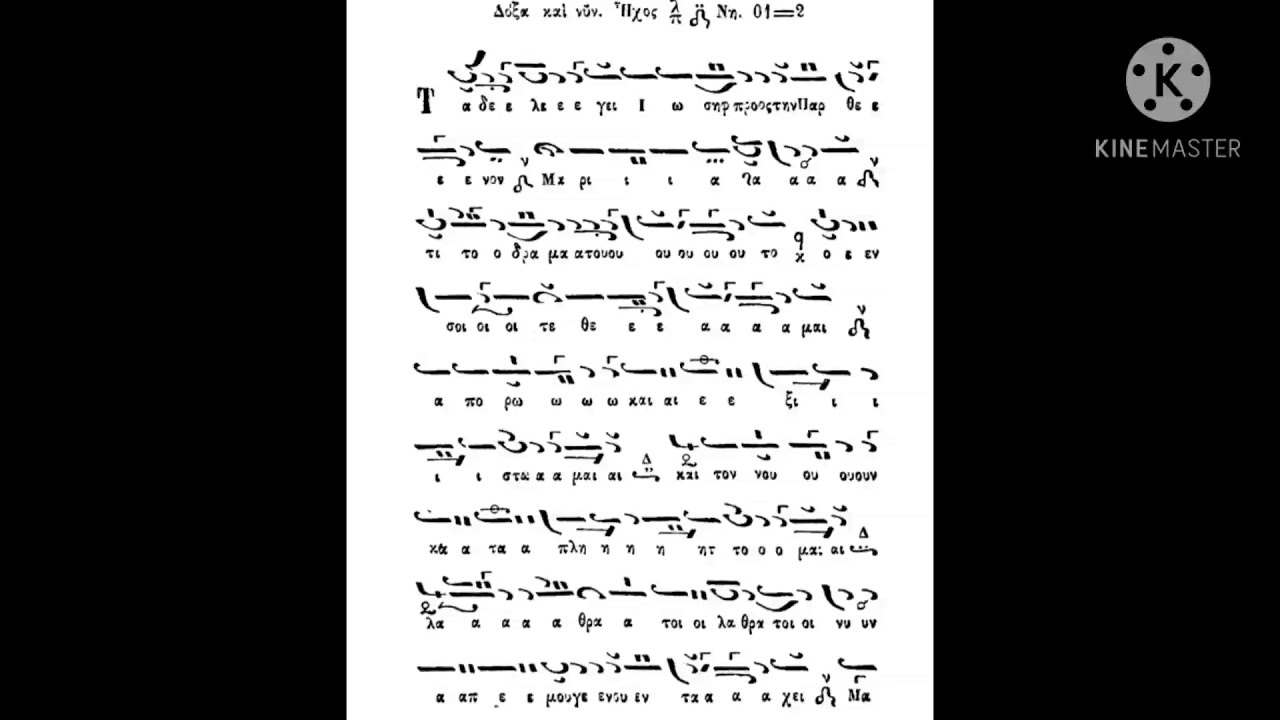 Δόξα καὶ νῦν. Ἦχος λ π Νη. 01=2
Τ ά δε ε λε ε ε γει Ι ω σηφ προς την Παρ θε ε
ε ε νον Μα ρι ι ι α 
τι το ο δρα μα α του ου ου ου ου ου το ο ε εν
σοι οι οι τε θε ε ε α α α α μαι
α πο ρω ω ω ω και αι ε ε ξι ι ι
ι ι στα α α μαι αι και τον νου ου ου ουν
κα α τα α πλη η η η ητ το ο ο μαι αι
λα α α α α θρα α τοι οι λα θρα τοι οι νυ υν
α απ ε ε μου γε ε νου εν τα α α α χει Μα
KINEMASTER